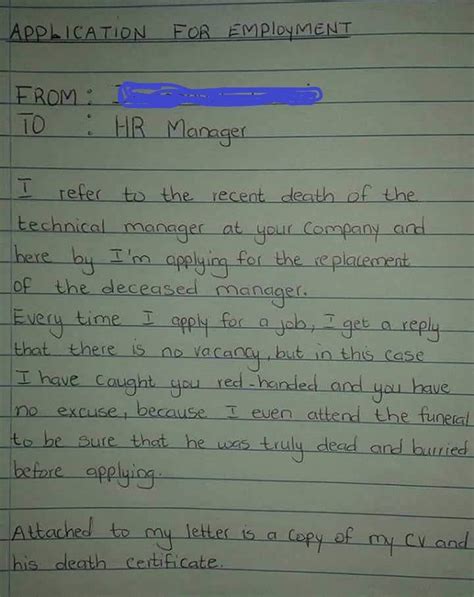 APPLICATION FOR EMPLOYMENT
FROM :
TO : HR Manager
I refer to the recent death of the
technical manager at your company and
here by I'm applying for the replacement
of the deceased manager.
Every time I apply for a job, I get a reply
that there is no vacancy, but in this case
I have caught you red-handed and you have
no excuse, because I even attend the funeral
to be sure that he was truly dead and burried
before applying.
Attached to my letter is a copy of my CV and
his death certificate.